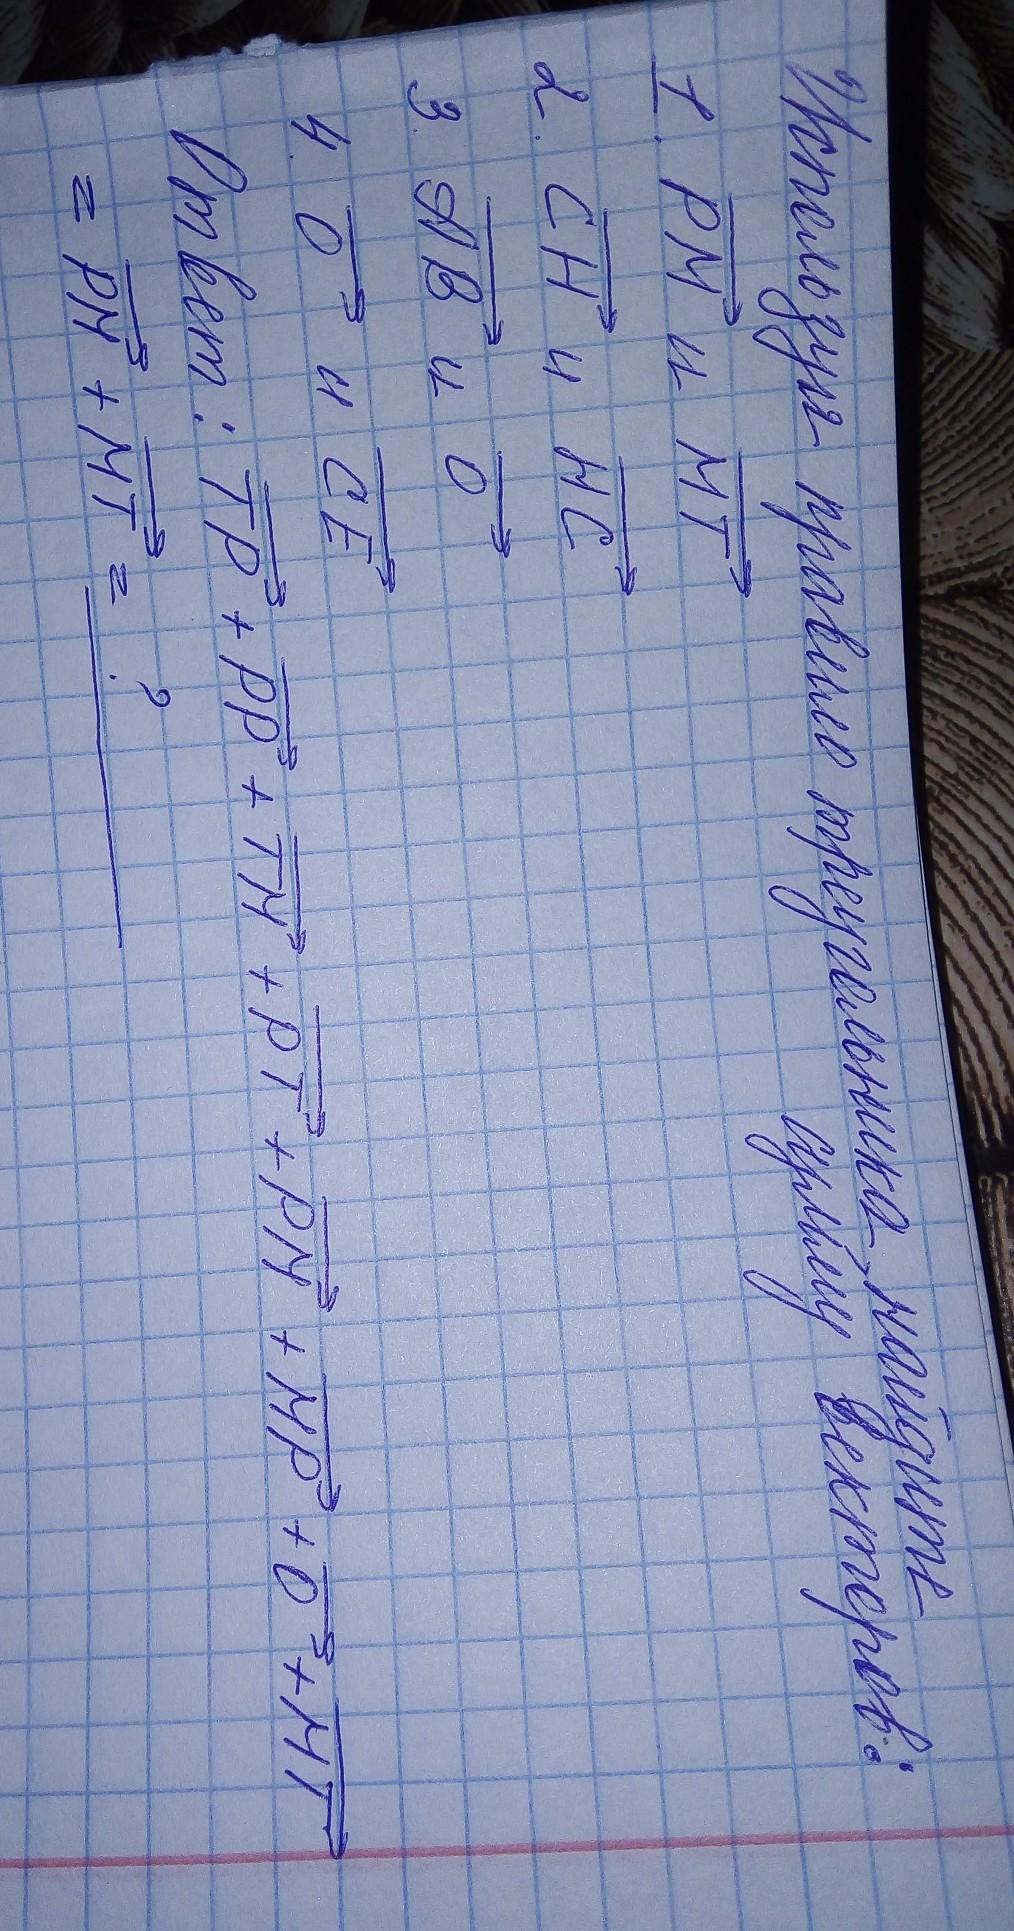 Используя правило треугольника, найдите
сумму векторов:
1. PM и MT
2. CH и HC
3. AB и O
4. O и CE
Ответ: TP + PP + TM + PT + PM + MP + O + MT
= PM + MT = ?